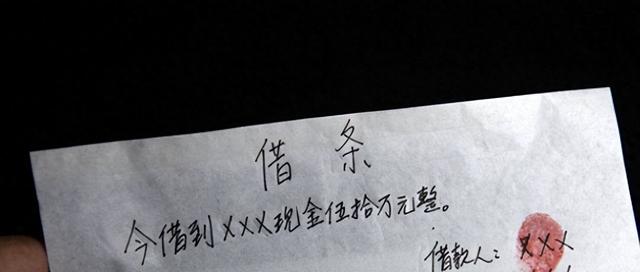 借条
今借到XXX现金伍拾万元整。
借款人：XXX